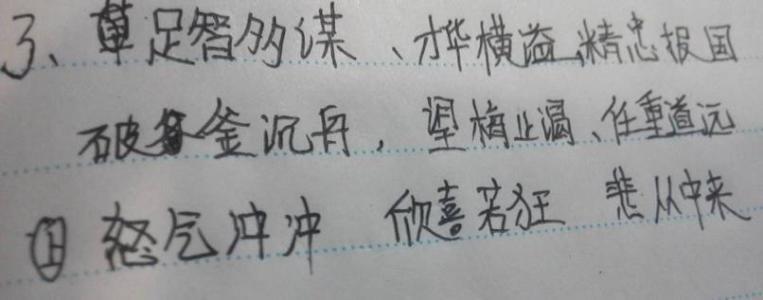 3、足智多谋、才华横溢、精忠报国
破釜沉舟，望梅止渴、任重道远
怒气冲冲 欣喜若狂 悲从中来